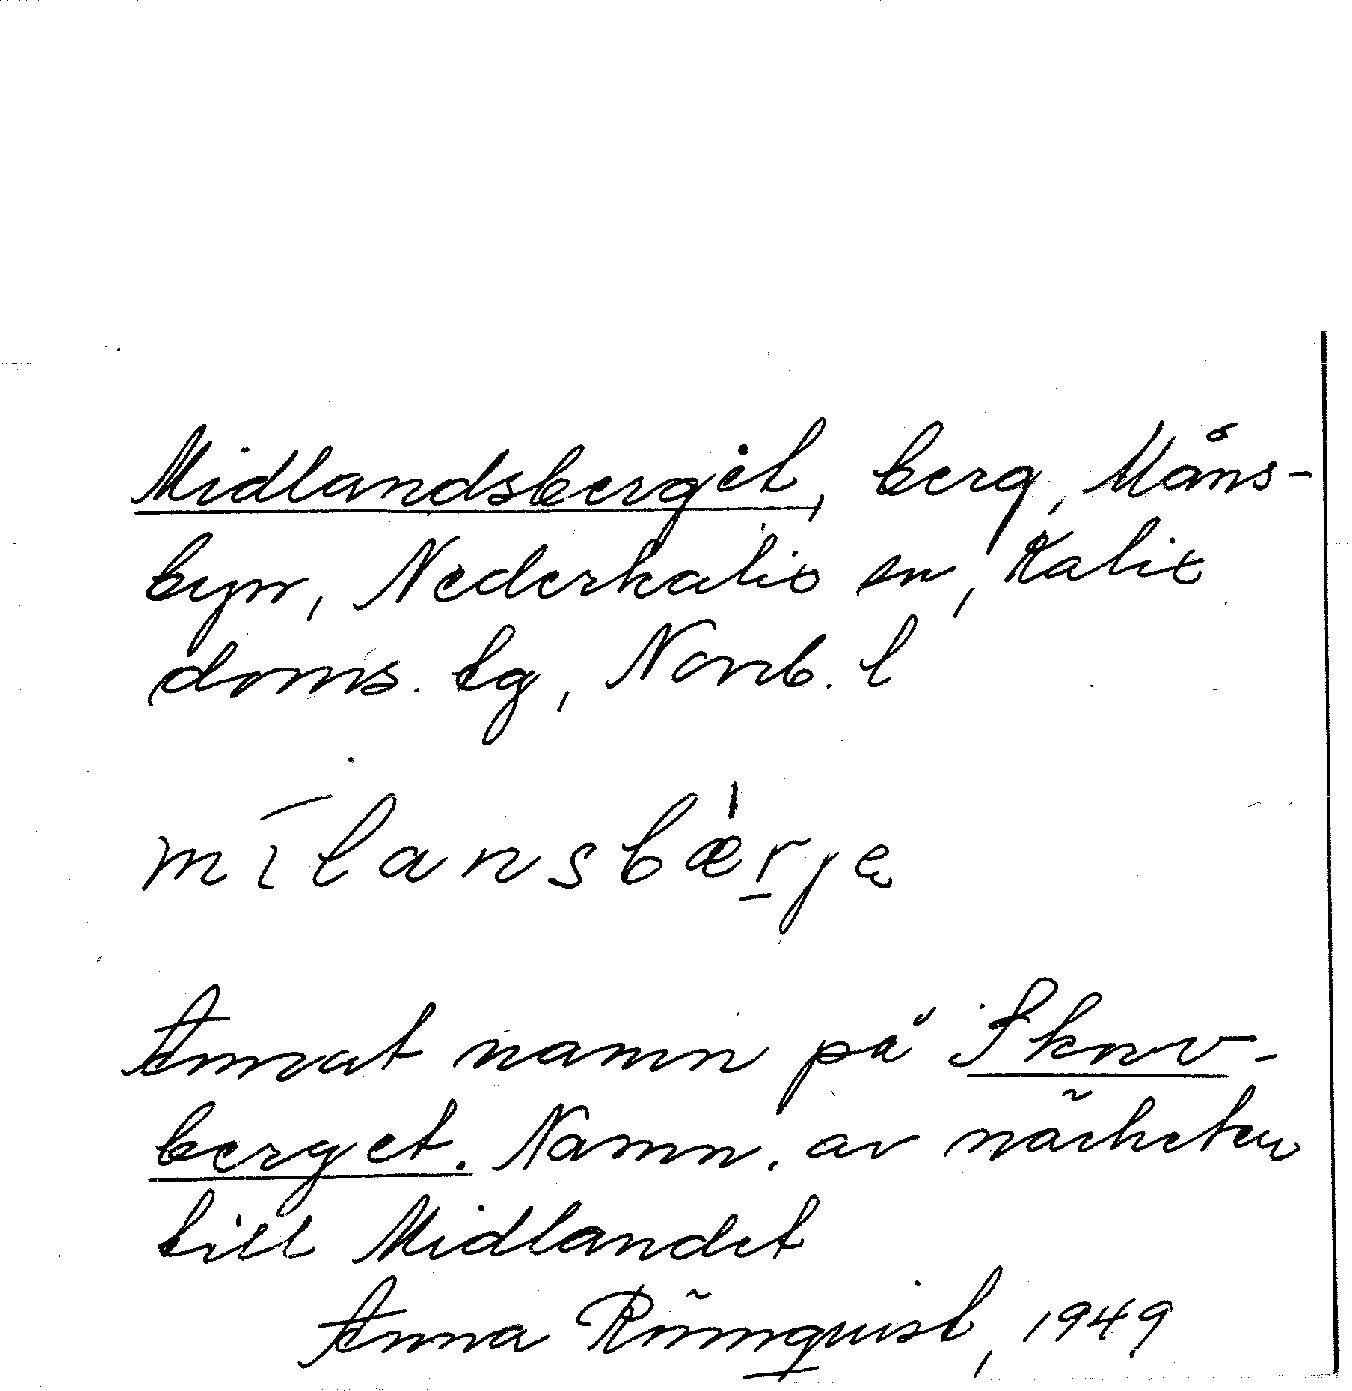 Midlandsberget, berg, Måns-
byn, Nederkalix sn, Kalix
doms. lg, Norrb. l
mīlansbæ̍r̠ja
Annat namn på Skorv-
berget. Namn. av närheten
till Midlandet
Anna Römquist, 1949